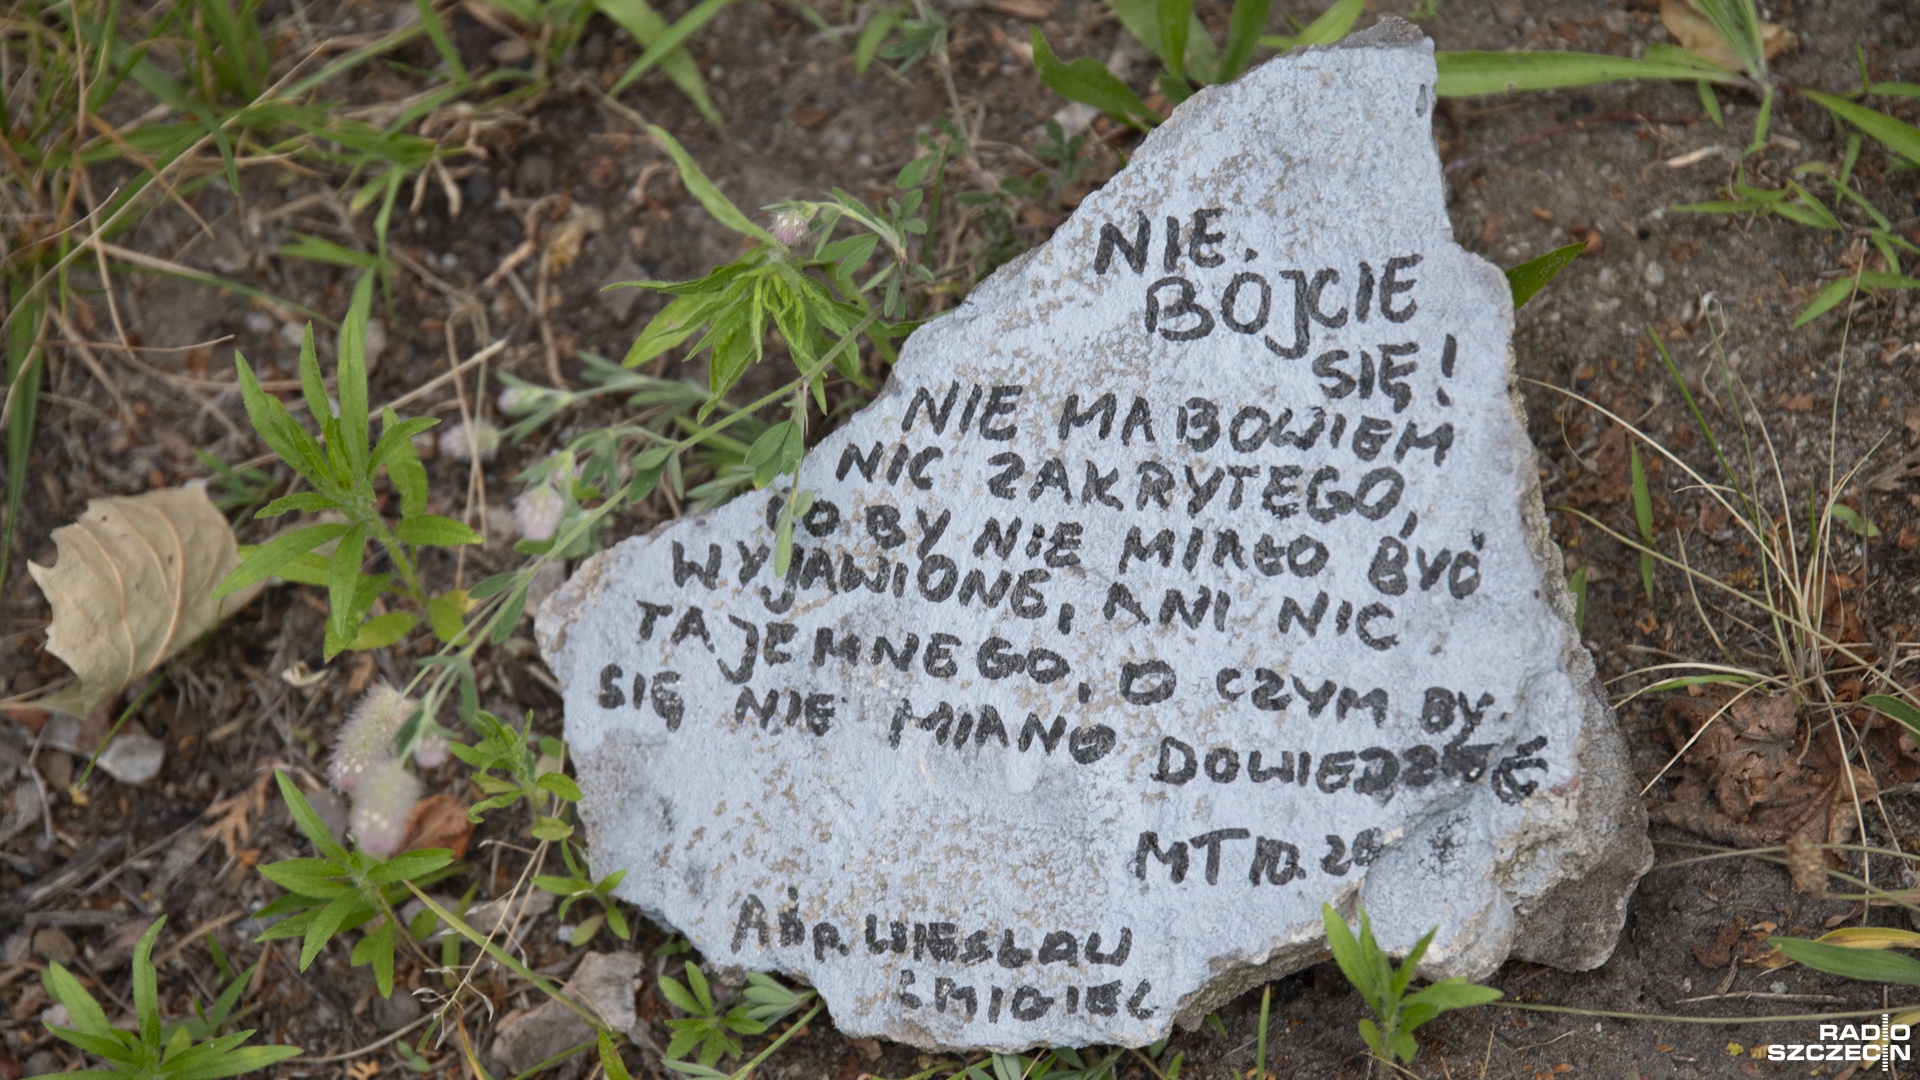 NIE.
BÓJCIE
SIĘ!
NIE MA BOWIEM
NIC ZAKRYTEGO,
CO BY NIE MIAŁO BYĆ
WYJAWIONE, ANI NIC
TAJEMNEGO, O CZYM BY
SIĘ NIE MIANO DOWIEDZIEĆ
MT 10.26
ABP. WIESŁAW
ŚMIGIEL
RADIO
SZCZECIN